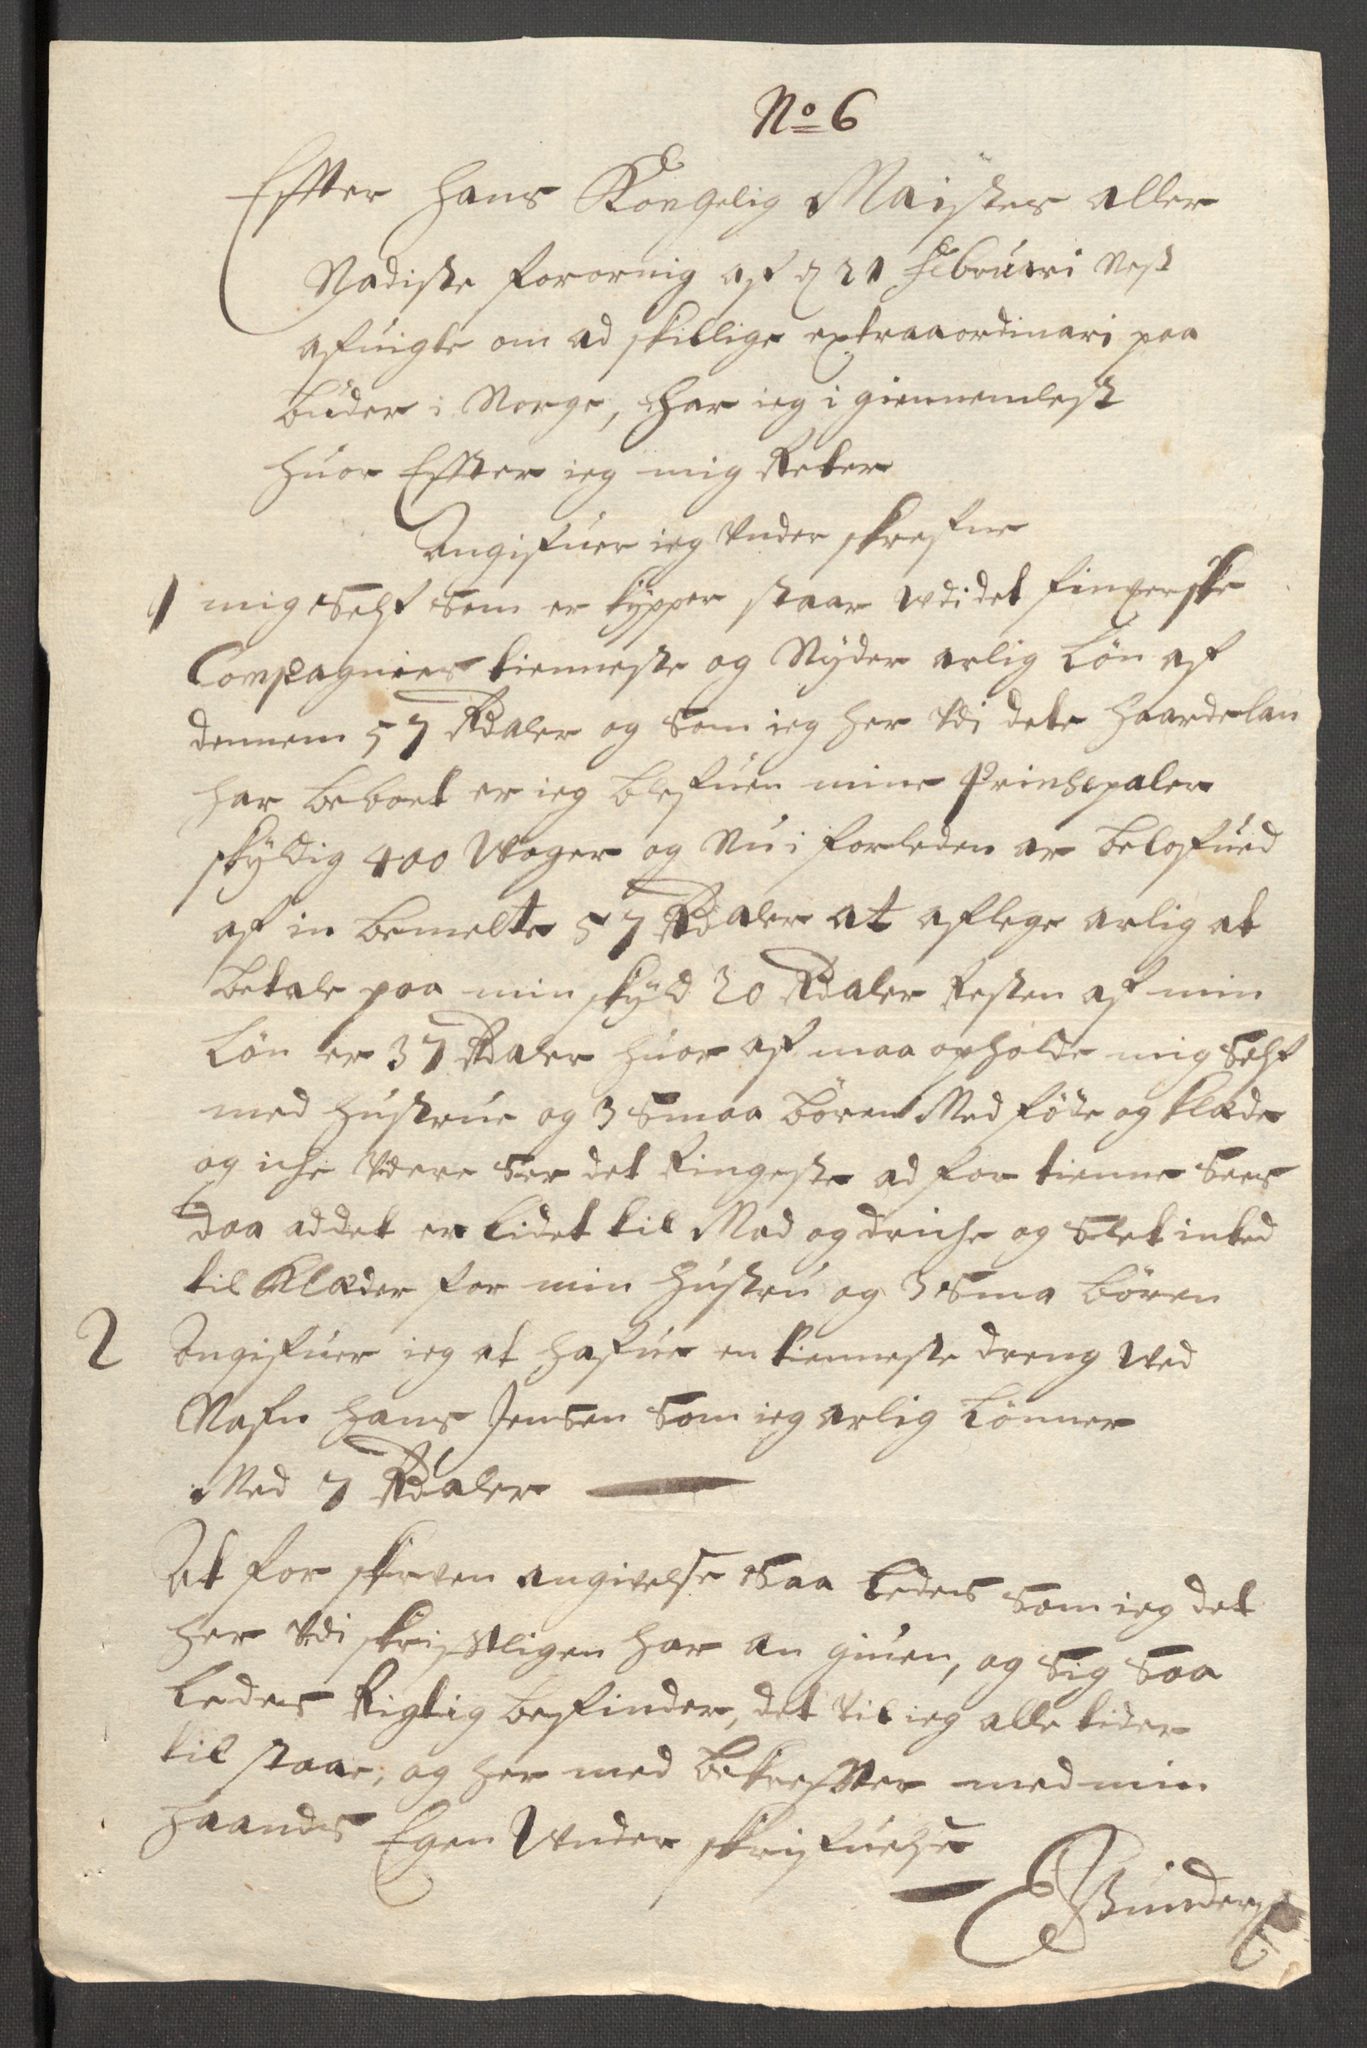 No 6
Effter hans Kongelig Maistes aller
Nadiste forornig af d 21 Februari Nest
afuigte om ad skillige extraaordinari paa
buder i Norge, har ieg i giennemlest
huor Effter ieg mig Reter
Angifuer ieg Vnder skrefne
1 mig Self som er kypper staar Udi det finmerske
Compagnies tienneste og Nyder arlig Løn af
dennem 57 Rdaler og som ieg her Vdi dete haarde lan
har beboet er ieg blefuen mine Prinsepaler
skyldig 400 Woger og Nu i forleden ar belofued
af in bemelte 57 Rdaler at aflege arlig at
betale paa min skyld 20 Rdaler Resten af min
Løn er 37 Rdaler huor af maa opholde mig Self
med hustrue og 3 Smaa børen Med føde og klæde
og iche Vdere Ser det Ringeste ad for tienne Sees
daa ad det er lidet til Mad og driche og Slet inted
til Klæder for min hustru og 3 Sma børen
2 Angifuer ieg at hafue en tienneste dreng Ved
Nafn hans Jensen Som ieg arlig Lønner
Med 7 Rdaler
At for skreven angivelse Saa ledes Som ieg det
her Vdi skrifftligen har an giuen, og Sig Saa
ledes Rigtig befinder, det Vil ieg alle tider
til staae, og her med bekreffter med min
haands Egen Under skrifuelse